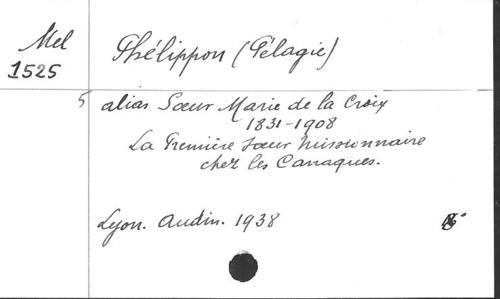 Mel
1525
Phélippon (Pélagie)
5 alias Sœur Marie de la Croix
1831-1908
La Première Sœur Missionnaire
chez les Canaques.
Lyon. Audin. 1938